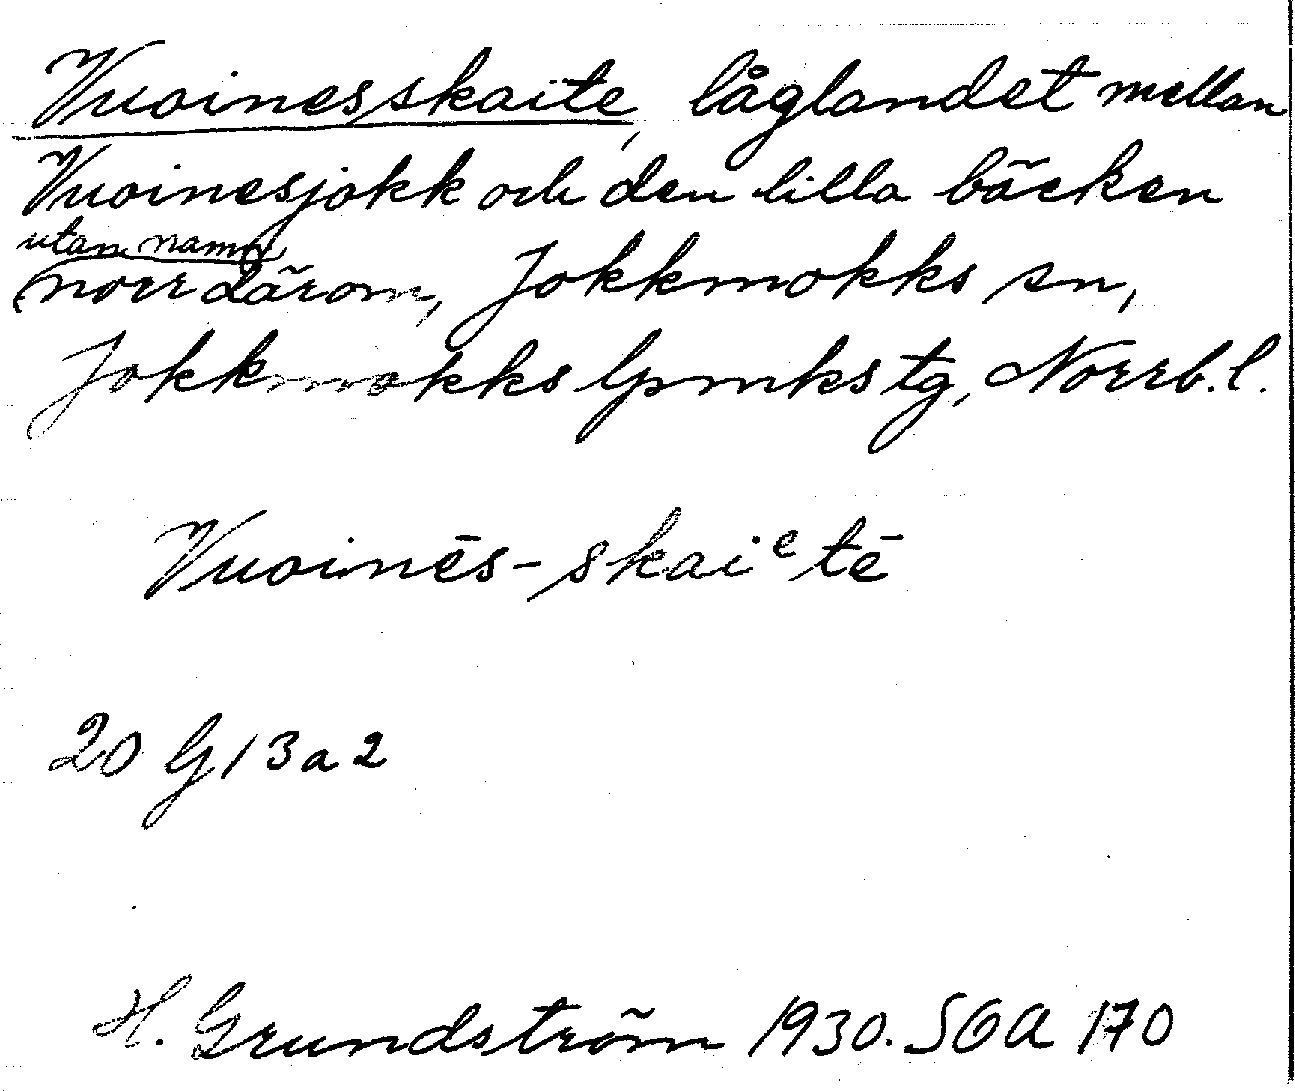 Vuoinesskaite, låglandet mellan
Vuoinesjokk och den lilla bäcken
utan namn
norr därom, Jokkmokks sn,
Jokkmokks lpmks tg, Norrb. l.
Vuoinēs-skaiᵉtē
20 G/3a2
H. Grundström 1930. SOA 170